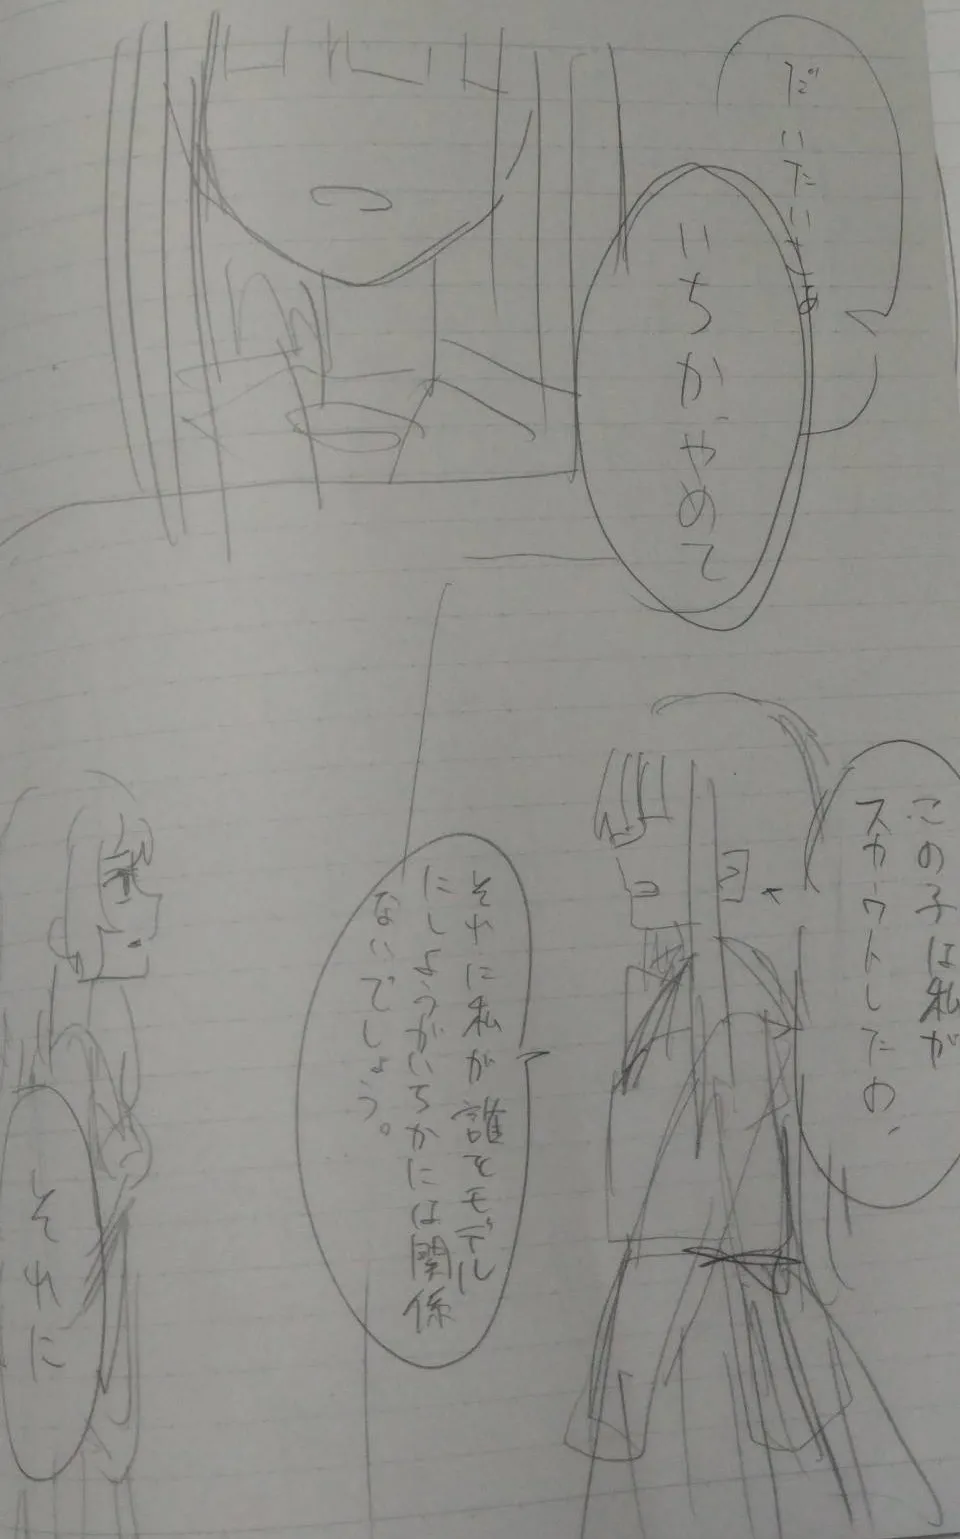 だいたいさぁ
いちか、やめて
この子は私が
スカウトしたの、
それに私が誰をモデル
にしようがいちかには関係
ないでしょう。
それに